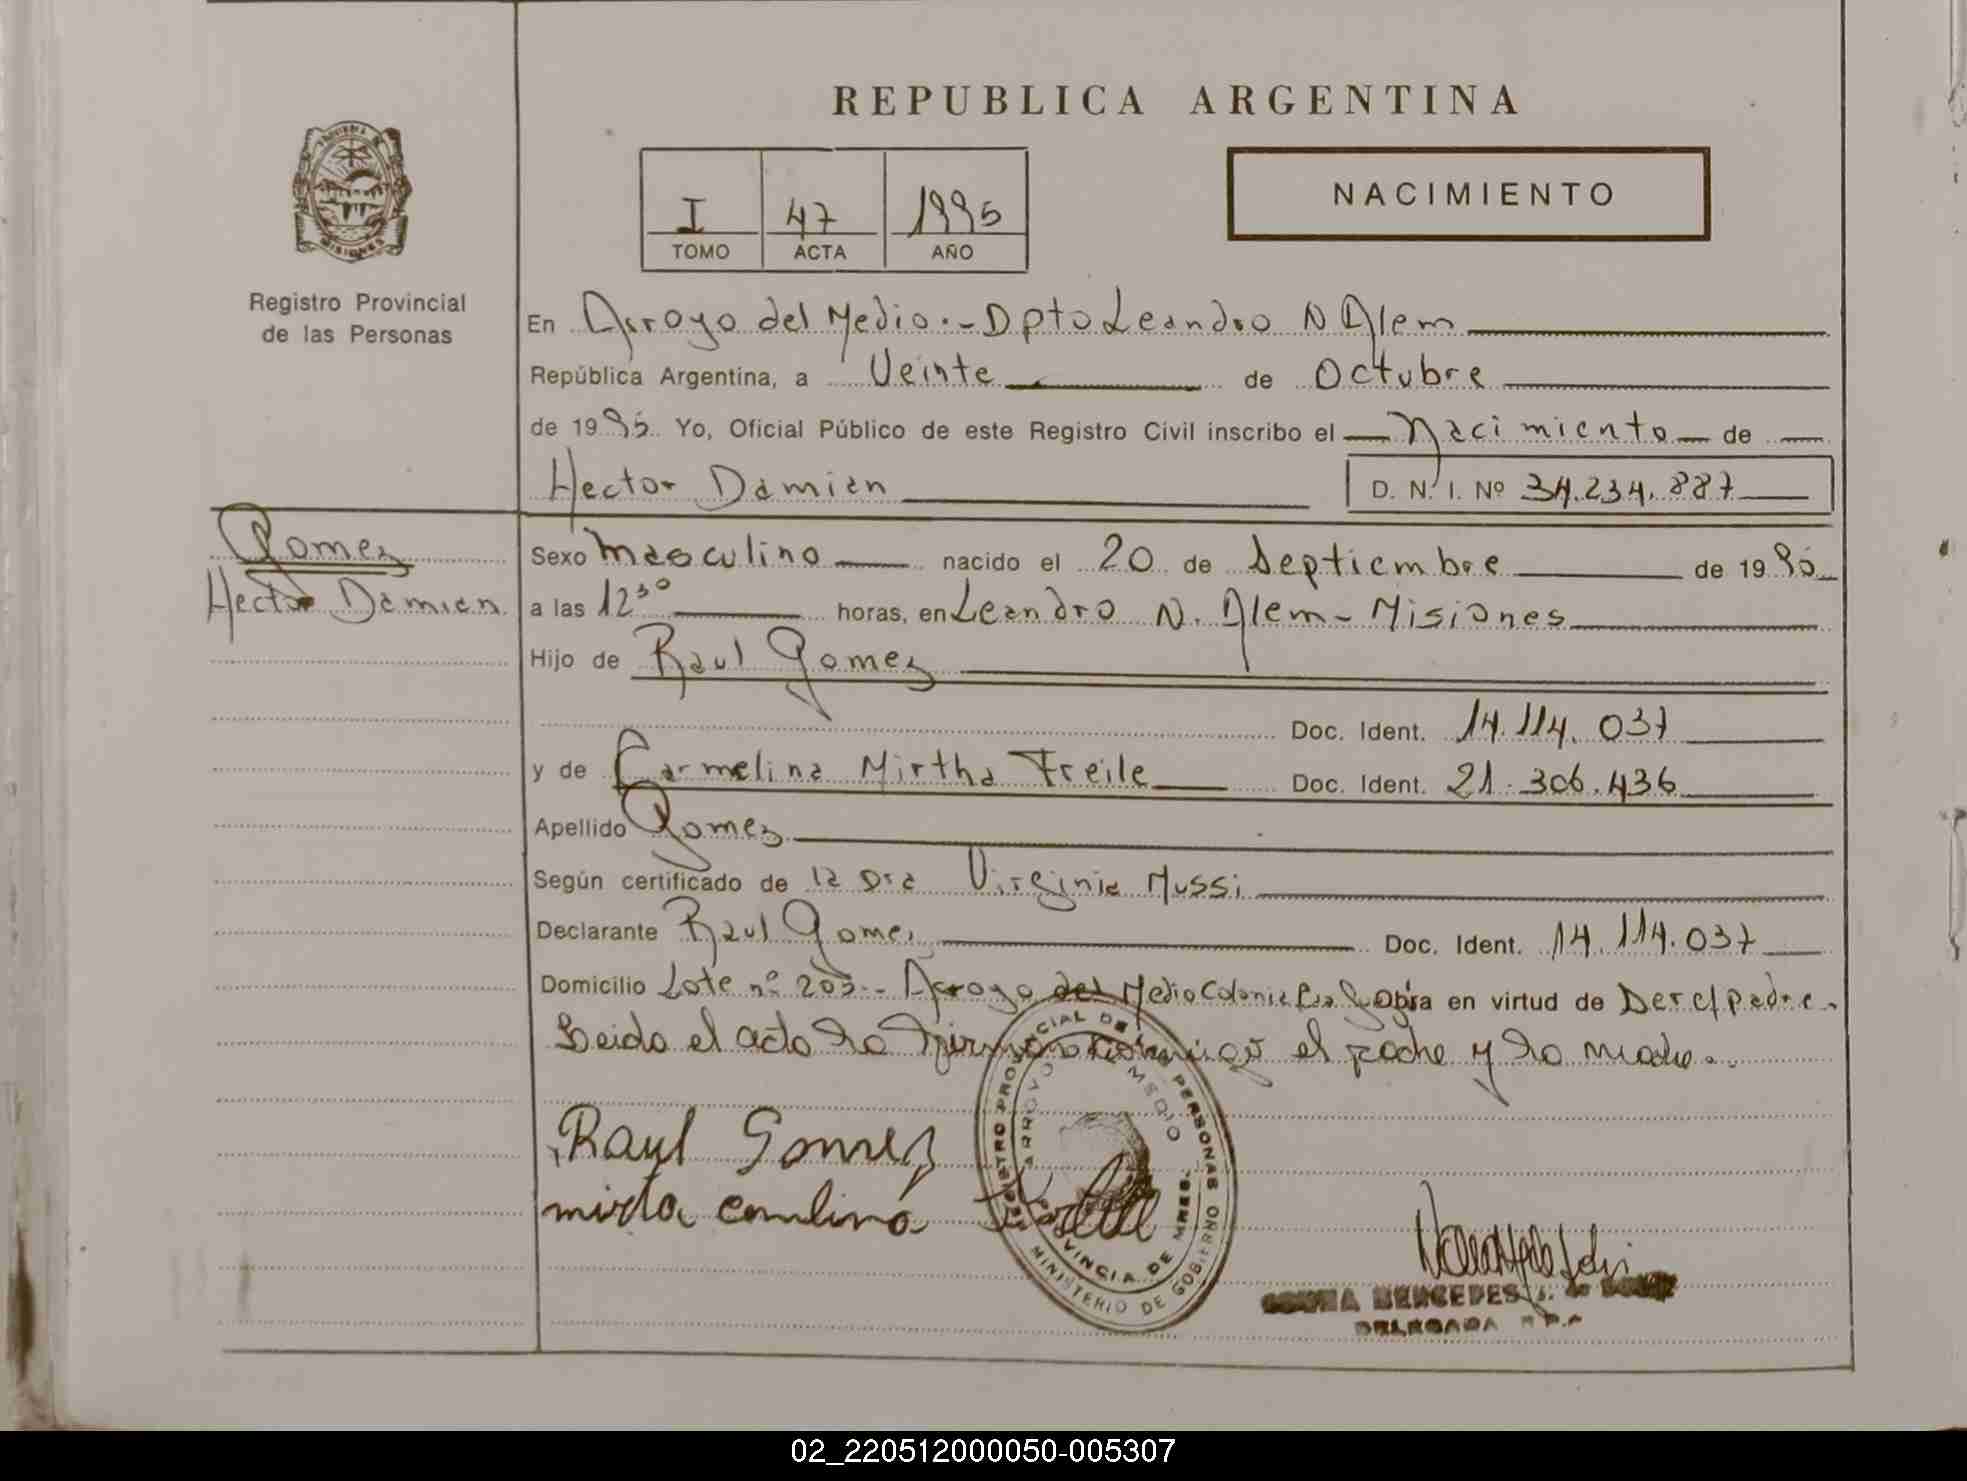 REPUBLICA ARGENTINA
NACIMIENTO
I 47 1995
TOMO ACTA AÑO
Registro Provincial
de las Personas
En Arroyo del Medio.- Dpto Leandro N Alem
República Argentina, a Veinte de Octubre
de 1995 Yo, Oficial Público de este Registro Civil inscribo el Nacimiento de
Hector Damian D. N. I. Nº 34.234.887
Gomez
Hector Damian
Sexo Masculino nacido el 20 de Septiembre de 1995
a las 12³⁰ horas, en Leandro N. Alem - Misiones
Hijo de Raul Gomez
Doc. Ident. 14.114.037
y de Carmelina Mirtha Freile Doc. Ident. 21.306.436
Apellido Gomez
Según certificado de la Dra Virginia Mussi
Declarante Raul Gomez Doc. Ident. 14.114.037
Domicilio Lote nº 203 - Arroyo del Medio Colonia obra en virtud de Der c/ padre.
Leida el acta la firman el padre y la madre.
Raul Gomez
mirta
REGISTRO PROVINCIAL DE LAS PERSONAS
MINISTERIO DE GOBIERNO
ARROYO DEL MEDIO
PROVINCIA DE MNES.
MERCEDES
DELEGADA
02_220512000050-005307